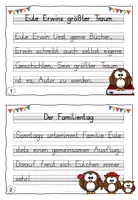 Eule Erwins größter Traum
Eule Erwin liest gerne Bücher.
Erwin schreibt auch selbst eigene
Geschichten. Sein größter Traum
ist es, Autor zu werden.
1
Der Familientag
Sonntags unternimmt Familie Eule
stets einen gemeinsamen Ausflug.
Darauf freut sich Eulchen immer
sehr!
2